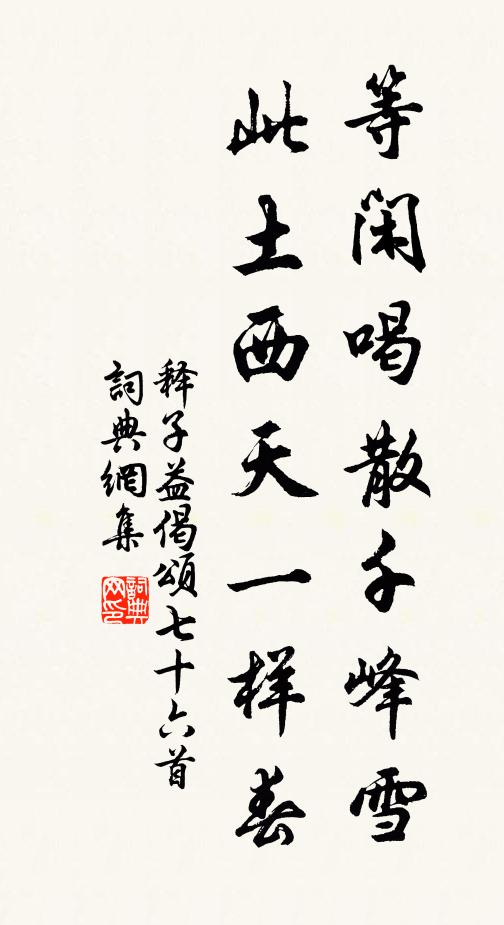 等闲喝散千峰雪
此土西天一样春
释子益偈頌七十六首
詞典網集
詞典网印